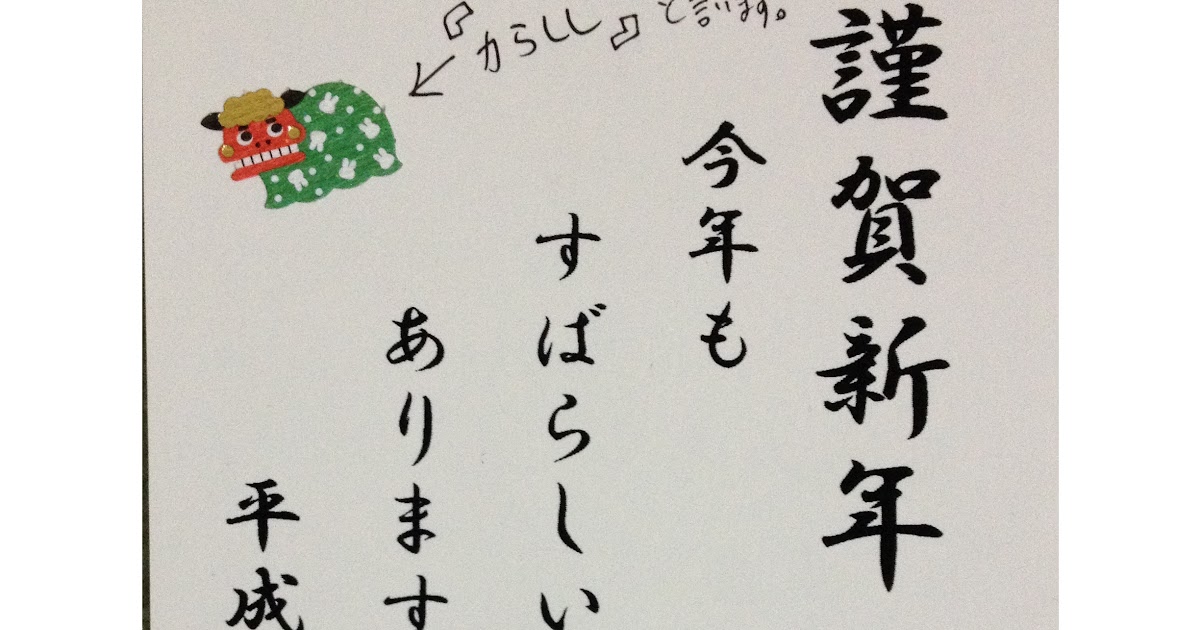 謹賀新年
今年も
すばらしい
あります
平成
『からしし』と言います。